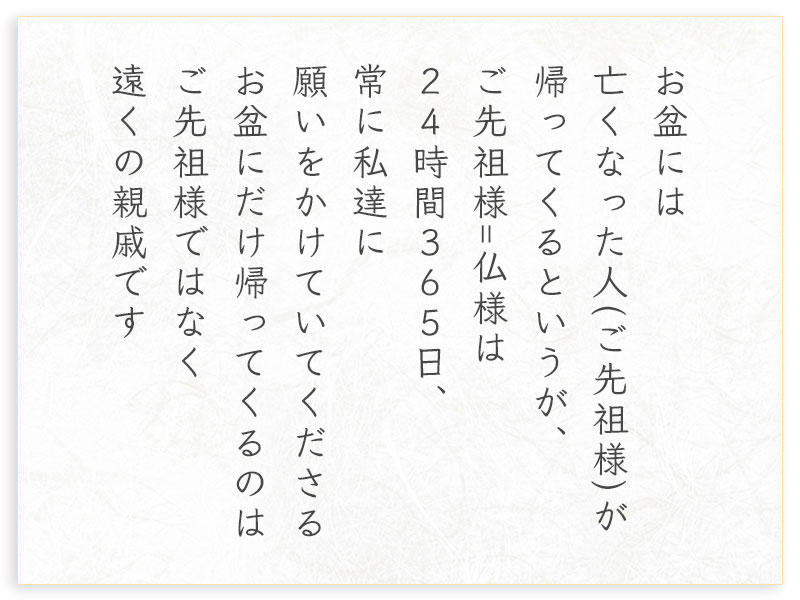 お盆には
亡くなった人(ご先祖様)が
帰ってくるというが、
ご先祖様=仏様は
24時間365日、
常に私達に
願いをかけていてくださる
お盆にだけ帰ってくるのは
ご先祖様ではなく
遠くの親戚です